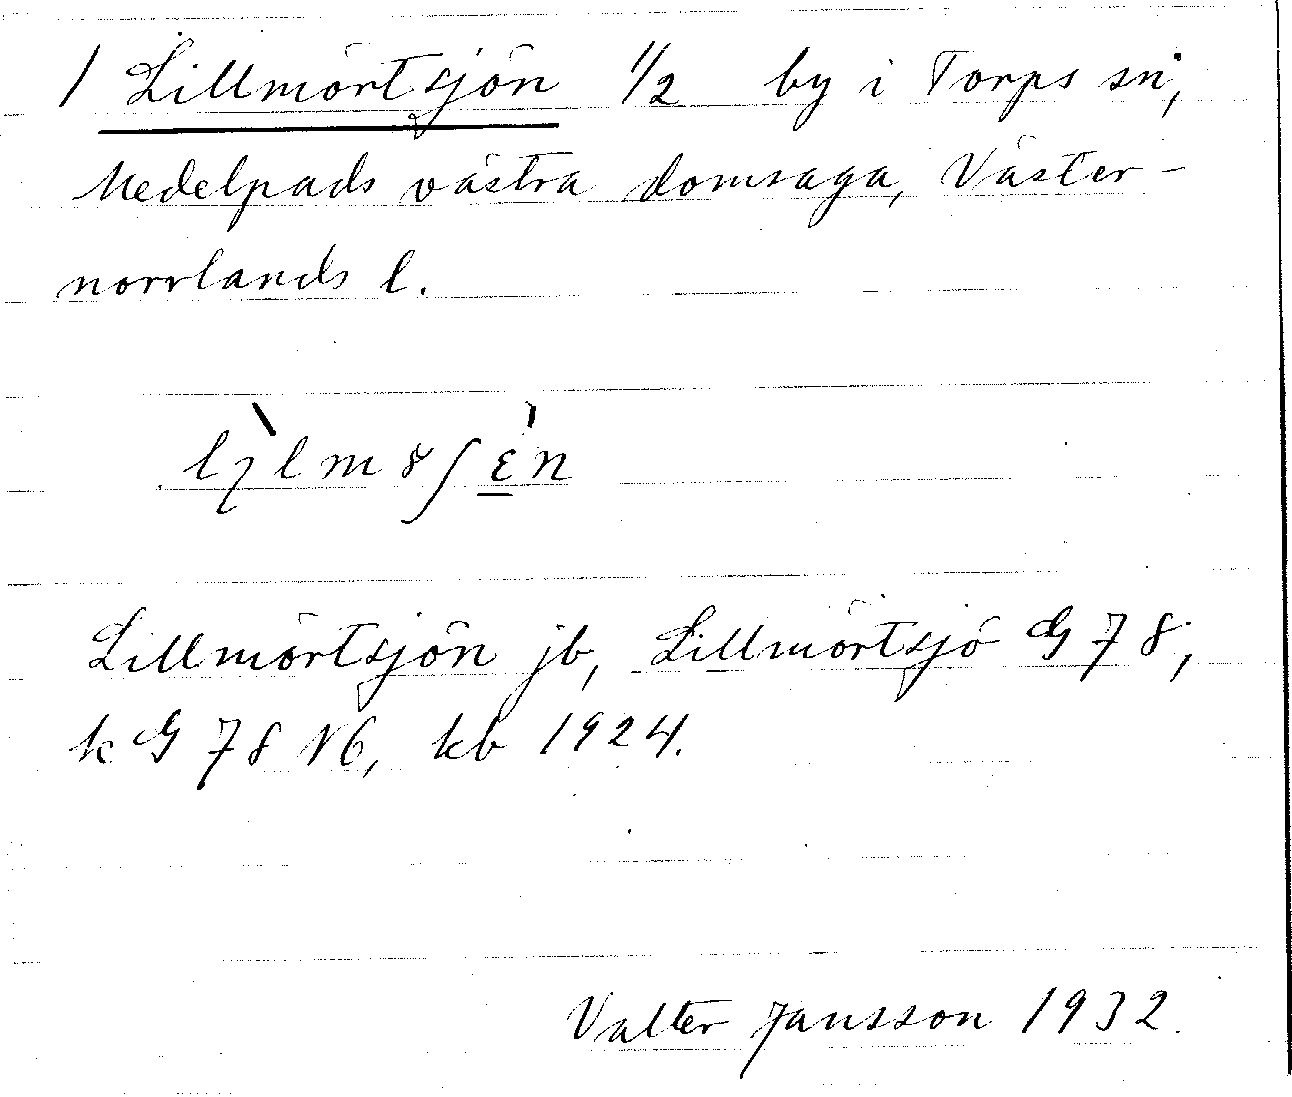 1 Lillmörtsjön 1/2 by i Torps sn,
Medelpads västra domsaga, Väster-
norrlands l.
Lillmörtsjön jb, Lillmörtsjö G 78,
k G 78 N6, kb 1924.
Valter Jansson 1932.